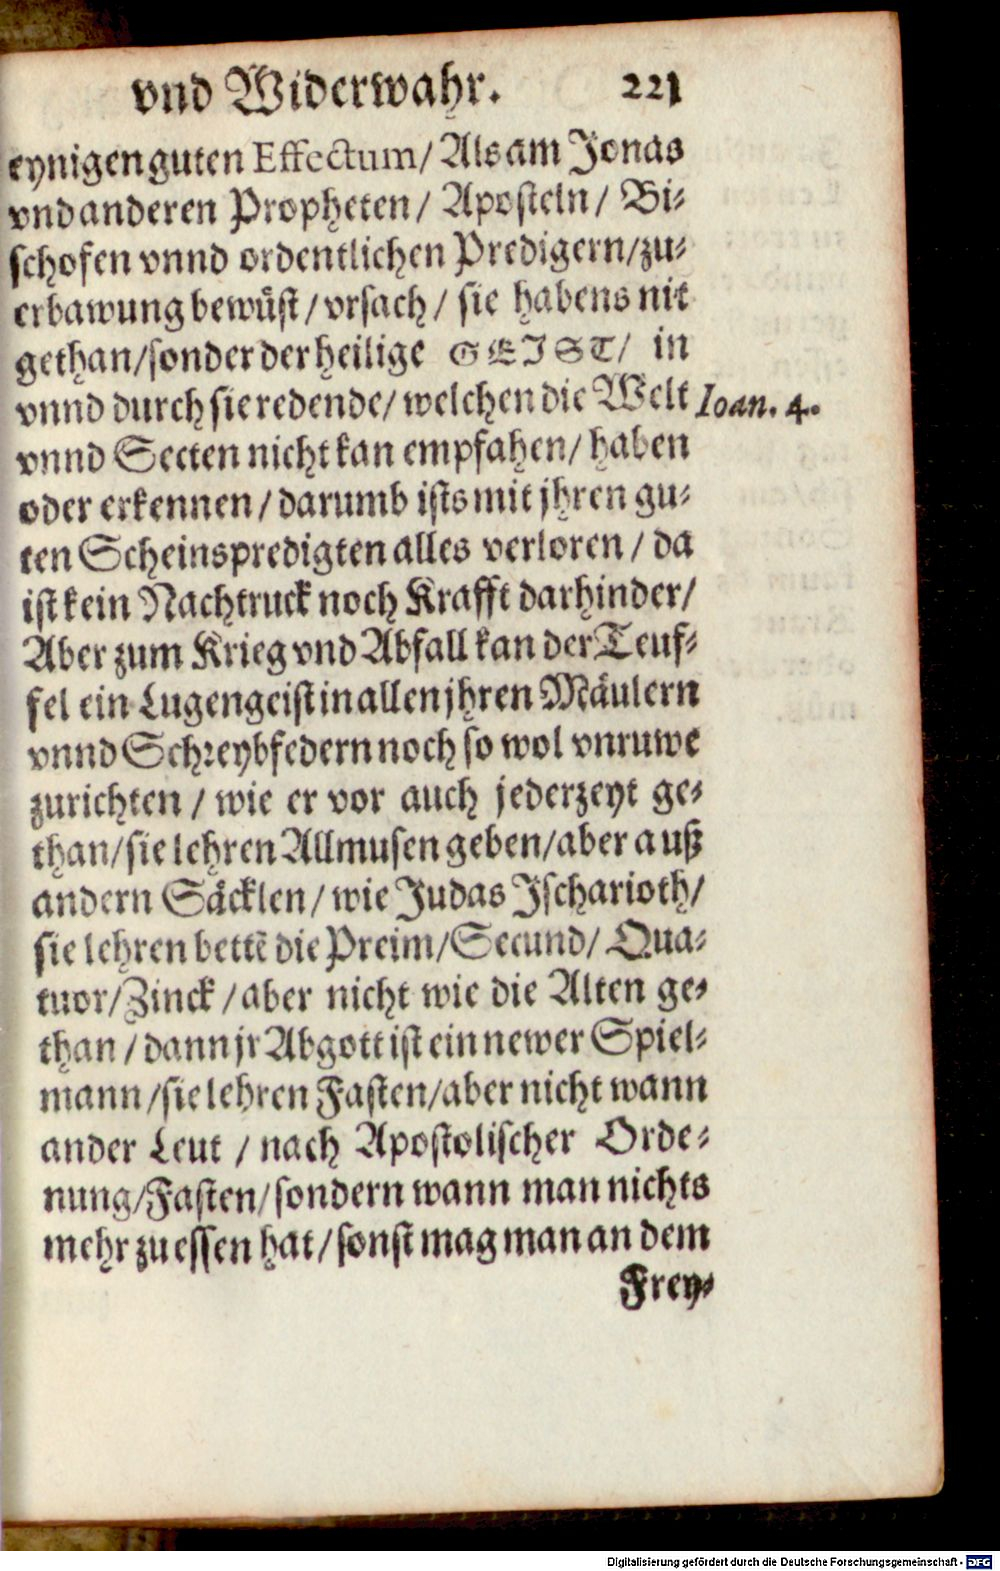 vnd Widerwahr. 221
eynigen guten Effectum/ Als am Jonas
vnd anderen Propheten/ Aposteln/ Bi-
schofen vnnd ordentlichen Predigern/zu-
erbawung bewüst/vrsach/ sie habens nit
gethan/sonder der heilige GEIST/ in
vnnd durch sie redende/ welchen die Welt Ioan. 4.
vnnd Secten nicht kan empfahen/ haben
oder erkennen/darumb ists mit jhren gu-
ten Scheinspredigten alles verloren/da
ist kein Nachtruck noch Krafft darhinder/
Aber zum Krieg vnd Abfall kan der Teuf-
fel ein Lugengeist in allen jhren Mäulern
vnnd Schreybfedern noch so wol vnruwe
zurichten/ wie er vor auch jederzeyt ge-
than/sie lehren Allmusen geben/aber auß
andern Säcklen/wie Judas Jscharioth/
sie lehren bettē die Preim/Secund/ Qua-
tuor/Zinck/aber nicht wie die Alten ge-
than/dann jr Abgott ist ein newer Spiel-
mann/sie lehren Fasten/aber nicht wann
ander Leut / nach Apostolischer Orde-
nung/Fasten/sondern wann man nichts
mehr zu essen hat/sonst mag man an dem
Frey-
Digitalisierung gefördert durch die Deutsche Forschungsgemeinschaft - DFG